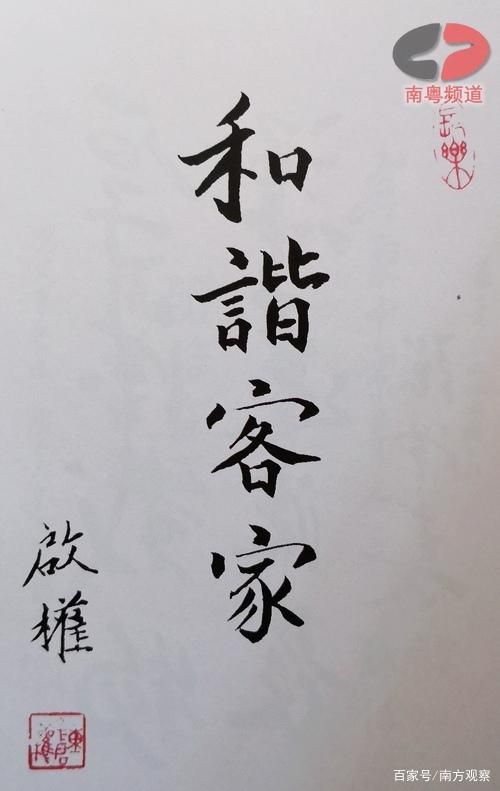 南粤频道
和諧客家
啟權
百家号/南方观察